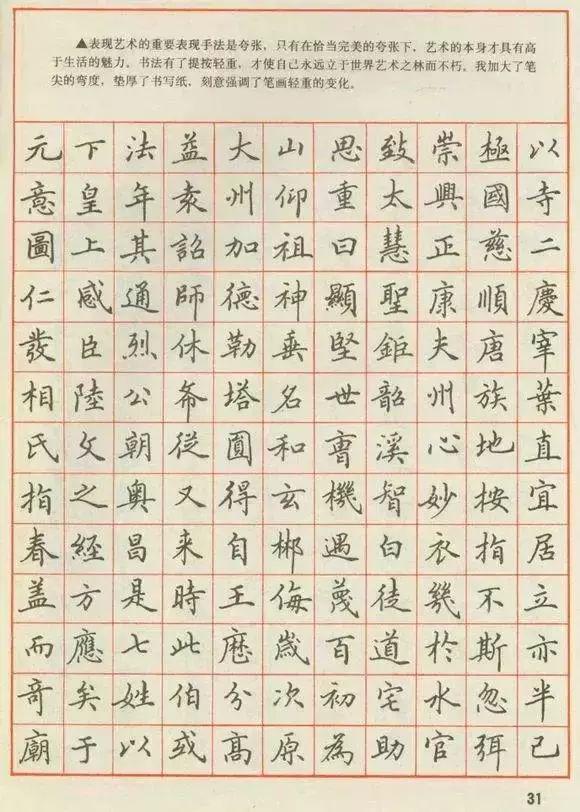 ▲表现艺术的重要表现手法是夸张，只有在恰当完美的夸张下，艺术的本身才具有高
于生活的魅力。书法有了提按轻重，才使自己永远立于世界艺术之林而不朽。我加大了笔
尖的弯度，垫厚了书写纸，刻意强调了笔画轻重的变化。
元下法益大山思致崇極以
意皇年袁州仰重太興國寺
圖上其詔加祖曰慧正慈二
仁感通師德神顯聖康順慶
發臣烈休勒垂堅鉅夫唐宰
相陸公希塔名世韶州族葉
氏父朝從圓和曹溪心地直
指之奥又得玄機智妙按宜
春經昌来自郴遇白衣指居
盖方是時王侮蔑徒幾不立
而應七此歷歲百道於斯亦
奇矣姓伯分次初宅水忽半
廟于以或高原為助官弭已
31